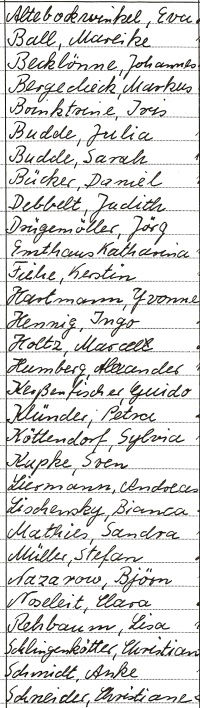 Altebockwinkel, Eva
Ball, Mareike
Becklönne, Johannes
Bergedieck, Markus
Brinktrine, Iris
Budde, Julia
Budde, Sarah
Bücker, Daniel
Debbelt, Judith
Drügemöller, Jörg
Emthaus Katharina
Fiehe, Kerstin
Hartmann, Yvonne
Hennig, Ingo
Holtz, Marcell
Humberg, Alexander
Keßenfischer, Guido
Klünder, Petra
Köttendorf, Sylvia
Kupke, Sven
Liermann, Andreas
Lischensky, Bianca
Mathies, Sandra
Müller, Stefan
Nazarow, Björn
Noseleit, Clara
Rehbaum, Lisa
Schlingenkötter, Christian
Schmidt, Anke
Schneider, Christiane